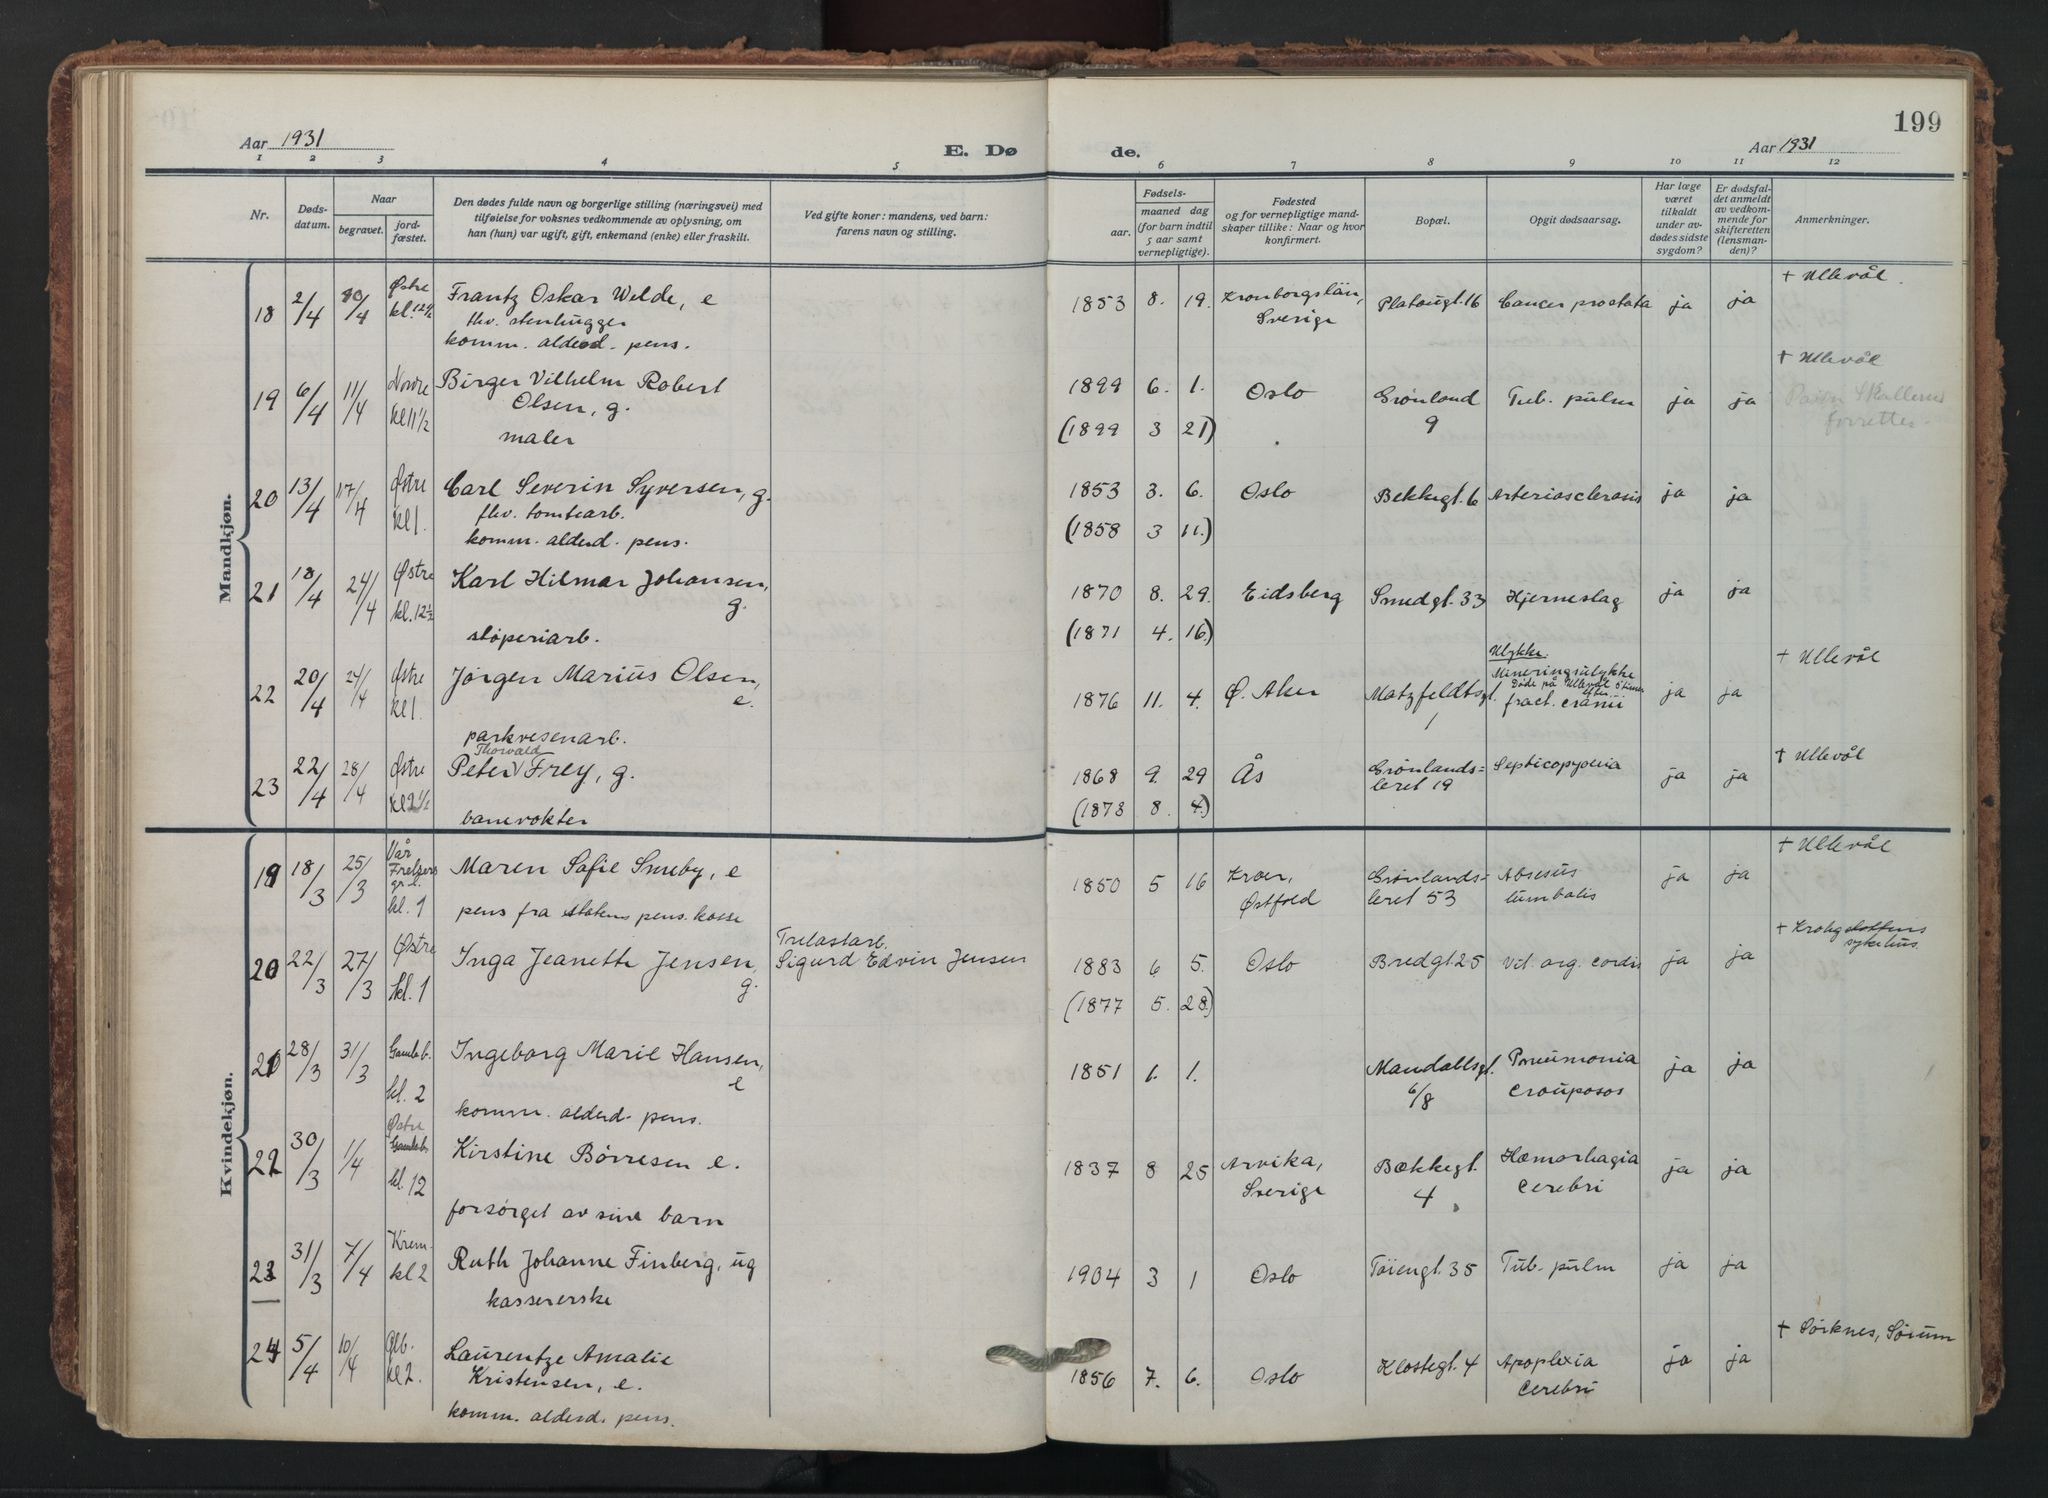 199
Aar 1931
E. Dø
de.
Aar 1931
1 2 3 4 5 6 7 8 9 10 11 12
Nr.
Døds-
datum.
Naar
begravet.
jord-
fæstet.
Den dødes fulde navn og borgerlige stilling (næringsvei) med
tilføielse for voksnes vedkommende av oplysning, om
han (hun) var ugift, gift, enkemand (enke) eller fraskilt.
Ved gifte koner: mandens, ved barn:
farens navn og stilling.
Fødsels-
aar.
maaned dag
(for barn indtil
5 aar samt
vernepligtige).
Fødested
og for vernepligtige mand-
skaper tillike: Naar og hvor
konfirmert.
Bopæl.
Opgit dødsaarsag.
Har læge
været
tilkaldt
under av-
dødes sidste
sygdom?
Er dødsfal-
det anmeldt
av vedkom-
mende for
skifteretten
(lensman-
den)?
Anmerkninger.
Mandkjøn.
+ Ullevål.
18 2/4 10/4 Østre Frantz Oskar Welde, e 1853 8. 19. Kronborgslän, Platougt. 16 Cancer prostata ja ja
kl. 12½ fhv. stenhugger Sverige
komm. alderd. pens.
+ Ullevål
19 6/4 11/4 Nordre Birger Vilhelm Robert 1899 6. 1. Oslo Grønland Tub. pulm ja ja
kl 11½ Olsen, g. (1899 3 21) 9 forretter.
maler
20 13/4 17/4 Østre Carl Severin Syversen, g. 1853 3. 6. Oslo Bekkegt. 6 Arteriosclerosis ja ja
kl 1. fhv. tomtearb. (1858 3 11.)
komm. alderd. pens.
21 18/4 24/4 Østre Karl Hilmar Johansen, 1870 8. 29. Eidsberg Smedgt. 33 Hjerneslag ja ja
kl. 12½ g. (1871 4. 16.)
støperiarb.
Ulykke. + Ullevål
22 20/4 24/4 Østre Jørgen Marius Olsen, 1876 11. 4. Ø. Aker Matzfeldtsgt. Mineringsulykke ja ja
kl 1. e. 1 Døde på Ullevål 5 timer efter.
fract. cranii
parkvesenarb.
Thorvald
23 22/4 28/4 Østre Peter V Frey, g. 1868 9. 29 Ås Grønlands= Septicopyemia ja ja + Ullevål
kl 2½ (1873 8. 4.) leret 19
banevokter
Kvindekjøn.
19 18/3 25/3 Vår Frelsers gr.l. Maren Sofie Smeby, e 1850 5 16 Kroer, Grønlands= Absesus ja ja + Ullevål
kl. 1 pens fra statens pens. kasse Østfold leret 53 lumbalis
Trelastarb.
20 22/3 27/3 Østre Inga Jeanette Jensen, Sigurd Edvin Jensen 1883 6 5. Oslo Bredgt 25 Vit. org. cordis ja ja + Krohgstøttens sykehus
kl. 1 g. (1877 5. 28.)
21 28/3 31/3 Gamleb. Ingeborg Marie Hansen, 1851 1. 1. Mandallsgt. Pneumonia ja ja
kl. 2 e 6/8 crouposos
komm. alderd. pens.
Østre
22 30/3 1/4 Gamleb. Kirstine Børresen e. 1837 8 25 Arvika, Bækkegt. Hæmorhagia ja ja
kl. 12 Sverige 4 cerebri
forsørget av sine barn
23 31/3 7/4 Krem. Ruth Johanne Finberg, ug 1904 3 1 Oslo Tøiengt. 35 Tub. pulm ja ja
kl 2 kassererske
24 5/4 10/4 Glb. Laurentze Amalie 1856 7. 6. Oslo Klostegt. 4 Apoplexia ja ja + Sørknes, Sørum
kl 2. Kristensen, e. cerebri
komm. alderd. pens.